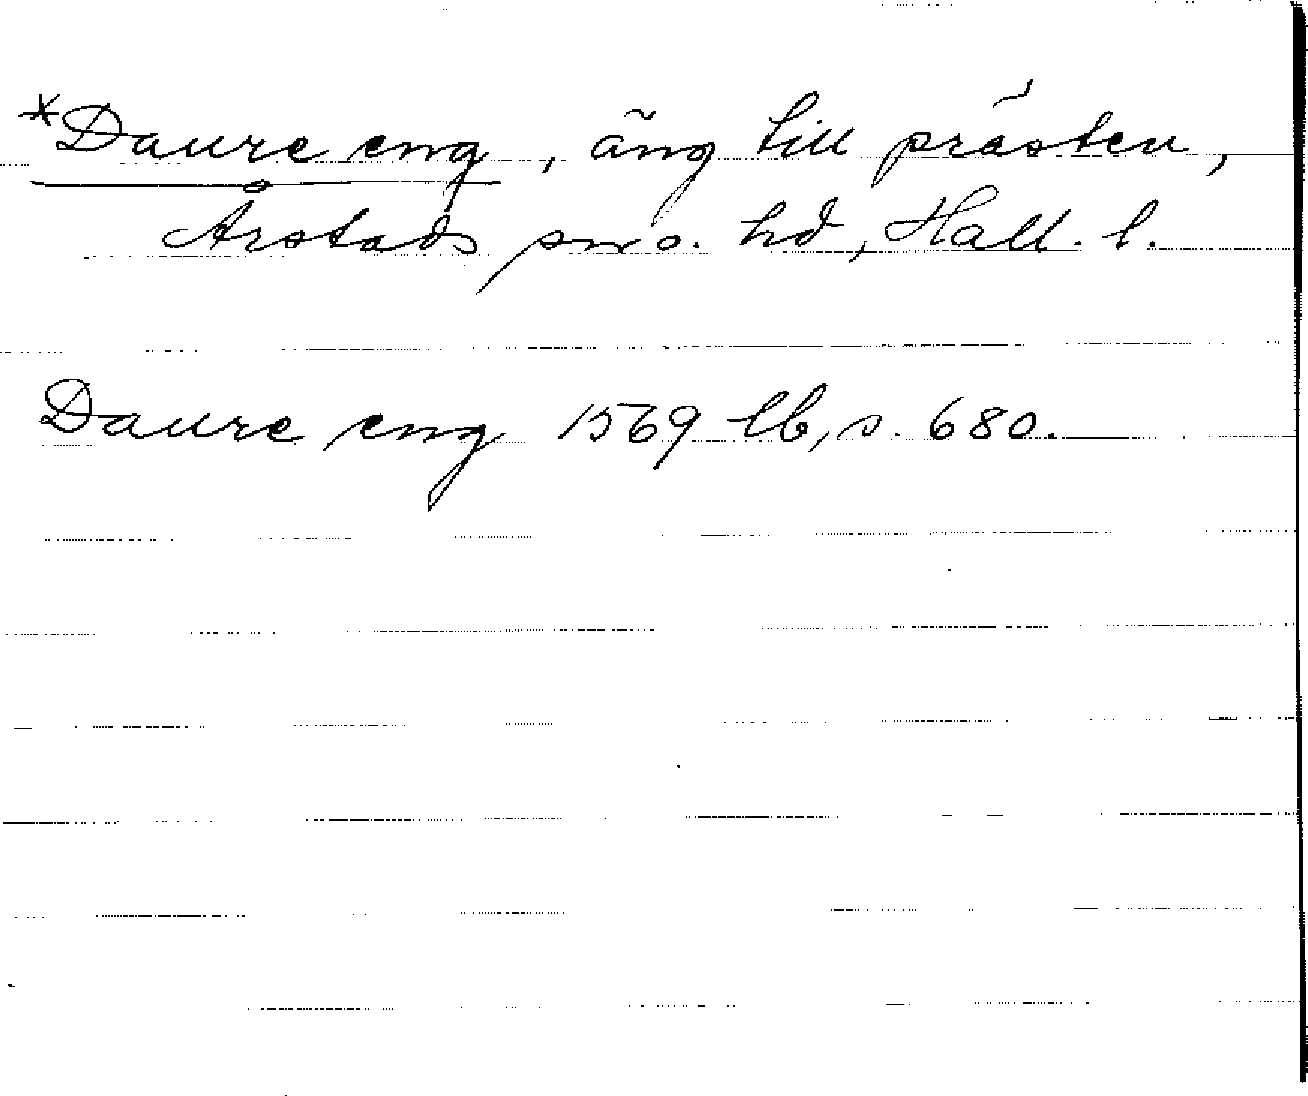 *Daure eng, äng till prästen,
Årstads sn o. hd, Hall. l.
Daure eng 1569 lb, s. 680.